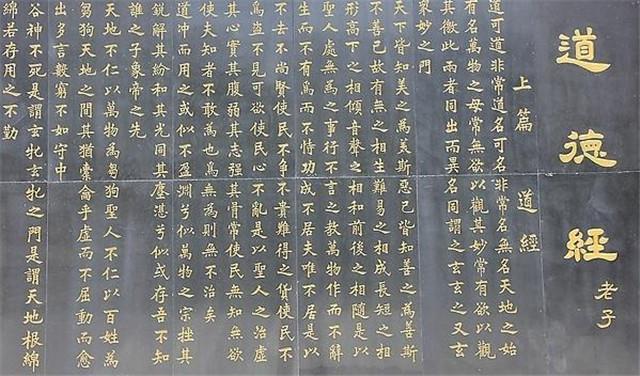 道德經
老子
上篇 道經
道可道非常道名可名非常名無名天地之始
有名萬物之母常無欲以觀其妙常有欲以觀
其徼此兩者同出而異名同謂之玄玄之又玄
衆妙之門
天下皆知美之為美斯惡已皆知善之為善斯
不善已故有無之相生難易之相成長短之相
形高下之相傾音聲之相和前後之相隨是以
聖人處無為之事行不言之教萬物作而不辭
生而不有為而不恃功成不居夫唯不居是以
不去不尚賢使民不爭不貴難得之貨使民不
為盜不見可欲使民心不亂是以聖人之治虛
其心實其腹弱其志強其骨常使民無知無欲
使夫知者不敢為也為無為則無不治矣
道沖而用之或似不盈淵兮似萬物之宗挫其
銳解其紛和其光同其塵湛兮似或存吾不知
誰之子象帝之先
天地不仁以萬物為芻狗聖人不仁以百姓為
芻狗天地之間其猶橐龠乎虛而不屈動而愈
出多言數窮不如守中
谷神不死是謂玄牝玄牝之門是謂天地根綿
綿若存用之不勤